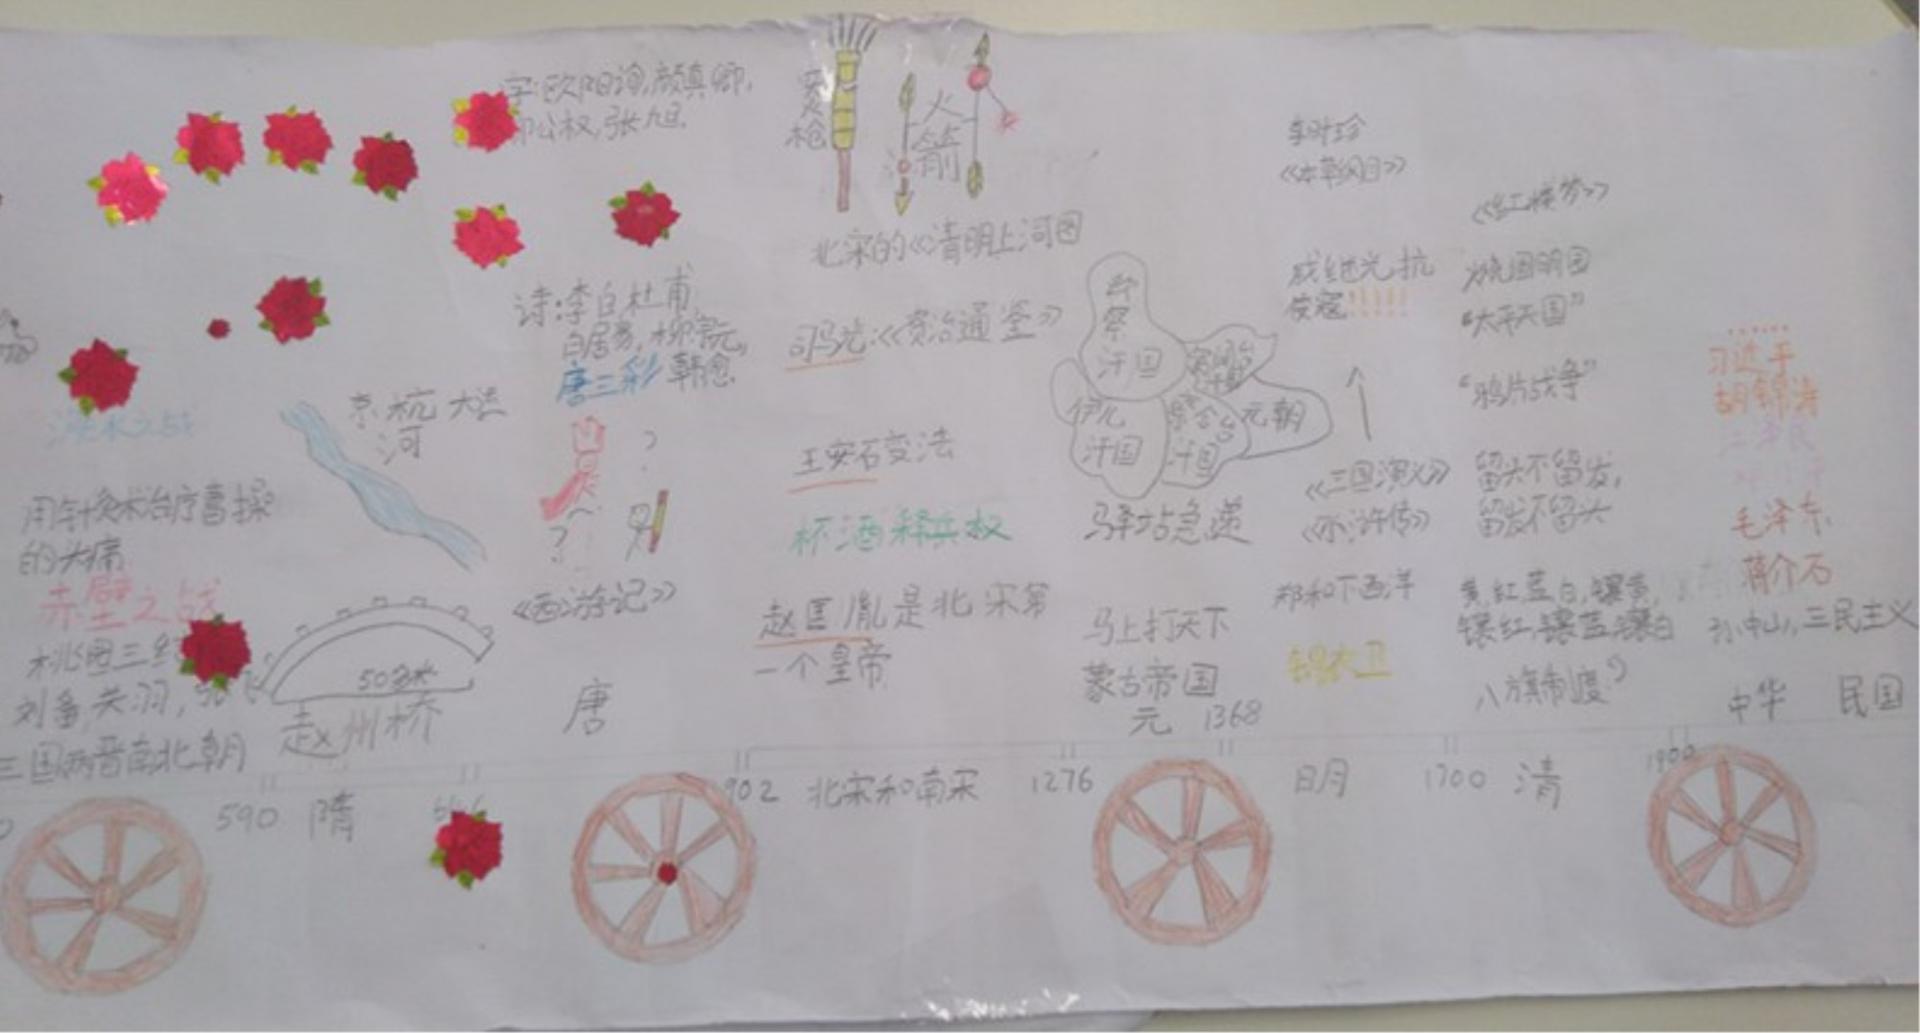 字:欧阳询,颜真卿,
柳公权,张旭
诗:李白杜甫,
白居易,柳宗元,
唐三彩 韩愈
京杭大运
河
淝水之战
用针灸术治疗曹操
的头痛
赤壁之战
桃园三结
刘备,关羽,张飞
三国两晋南北朝
50多米
赵州桥
590 隋
《西游记》
唐
突火枪
火箭
北宋的《清明上河图
司马光:《资治通鉴》
王安石变法
杯酒释兵权
赵匡胤是北宋第
一个皇帝
902 北宋和南宋 1276
汗国
伊儿
汗国
汗国
元朝
驿站急递
马上打天下
蒙古帝国
元 1368
李时珍
《本草纲目》
戚继光抗
倭寇!!!!!!
《三国演义》
《水浒传》
郑和下西洋
锦衣卫
明 1700 清
《红楼梦》
烧圆明园
“太平天国”
“鸦片战争”
留头不留发,
留发不留头
黄,红,蓝,白,镶黄,
镶红,镶蓝,镶白
八旗制度
1900
习近平
胡锦涛
江泽民
毛泽东
蒋介石
孙中山,三民主义
中华 民国